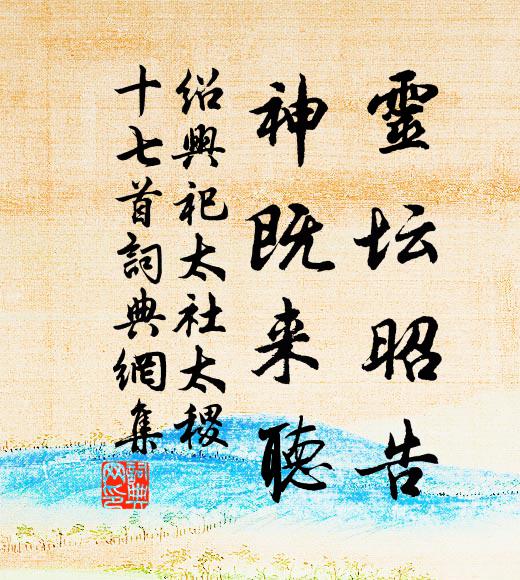 靈坛昭告
神既来聽
绍興祀太社太稷
十七首詞典網集